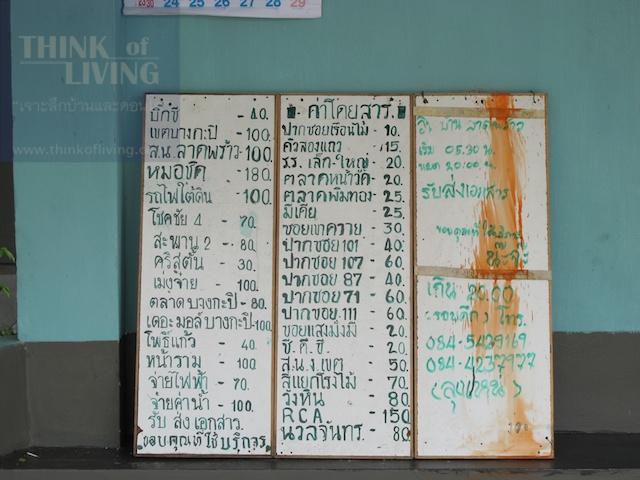 23/30 24 25 26 27 28 29
THINK of
LIVING
"เจาะลึกบ้านและคอนโด
www.thinkofliving.c
บิ๊กซี - 40.
เขตบางกะปิ - 100.
ส.น. ลาดพร้าว - 100
หมอชิต - 180
รถไฟใต้ดิน - 100
โชคชัย 4 - 70.
สะพาน 2 - 80
คริสตั้น - 30.
เมงจ๋าย - 100.
ตลาดบางกะปิ - 80.
เดอะมอล์บางกะปิ - 100
โพธิ์แก้ว - 40.
หน้าราม - 100.
จ่ายไฟฟ้า - 70.
จ่ายค่าน้ำ - 100.
รับ ส่งเอกสาร
ขอบคุณที่ใช้บริการ
ค่าโดยสาร
ปากซอยเรือนไม้ - 10.
คิวสองแถว - 15.
รร. เล็ก-ใหญ่ - 20.
ตลาดหน้าวัด - 20.
ตลาดพิมทอง - 25.
มีเดีย - 25.
ซอยเขาควาย - 30.
ปากซอย 101 - 40.
ปากซอย 107 - 60.
ปากซอย 87 - 40.
ปากซอย 71 - 60.
ปากซอย 111 - 60.
ซอยแสงมิ่งมี - 20.
ซี.ดี.ซี - 20.
ส.น.ง.เขต - 50.
สี่แยกโรงไม้ - 70.
วังหิน - 80.
RCA - 150
นวลจันทร์ - 80
ลาดพร้าว
เริ่ม 05.30 น.
หมด 20.00 น.
รับส่งเอกสาร
ขอบคุณที่ใช้บริการ
เกิน 20.00
รอบดึก) โทร.
084-5429169
084-4237977